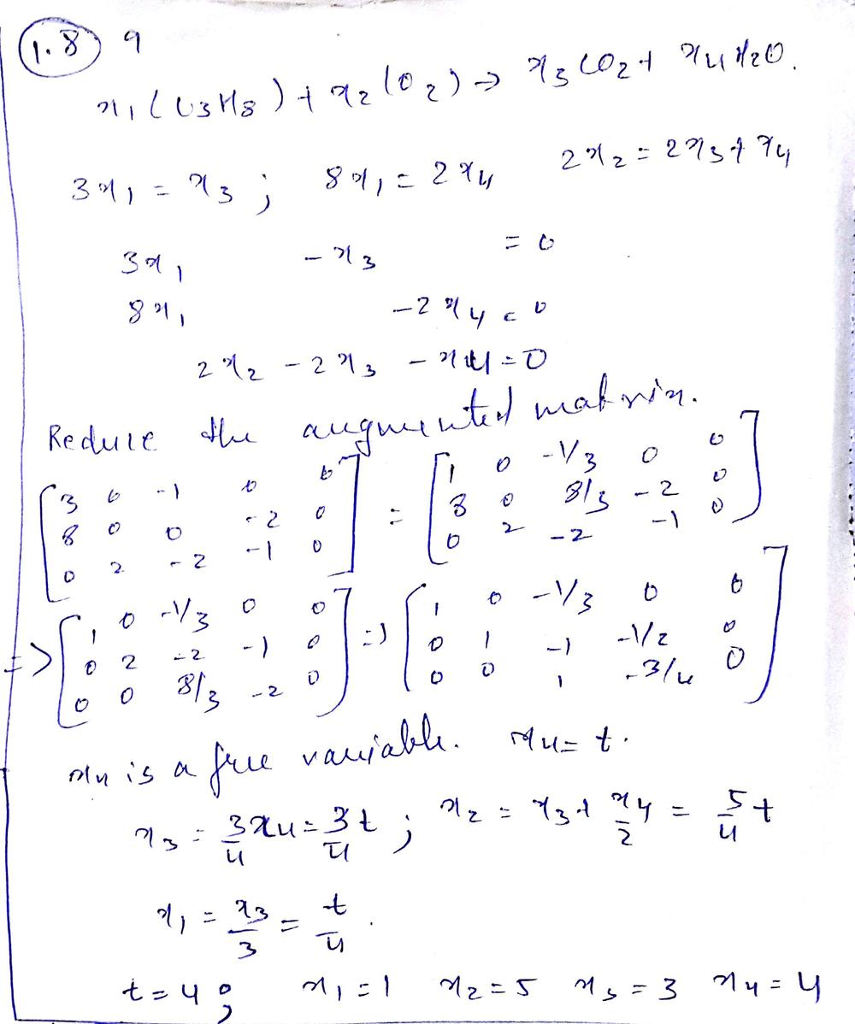 1.8 9
x₁(C₃H₈) + x₂(O₂) → x₃CO₂ + x₄H₂O.
3x₁ = x₃ ; 8x₁ = 2x₄ 2x₂ = 2x₃ + x₄
3x₁ - x₃ = 0
8x₁ - 2x₄ = 0
2x₂ - 2x₃ - x₄ = 0
Reduce the augmented matrix.
[3 0 -1 0 0] = [1 0 -1/3 0 0]
[8 0 0 -2 0] [8 0 8/3 -2 0]
[0 2 -2 -1 0] [0 2 -2 -1 0]
=> [1 0 -1/3 0 0] => [1 0 -1/3 0 0]
[0 2 -2 -1 0] [0 1 -1 -1/2 0]
[0 0 8/3 -2 0] [0 0 1 -3/4 0]
x₄ is a free variable. x₄ = t.
x₃ = 3x₄/4 = 3t/4 ; x₂ = x₃ + x₄/2 = 5/4 t
x₁ = x₃/3 = t/4.
t = 4 ; x₁ = 1 x₂ = 5 x₃ = 3 x₄ = 4